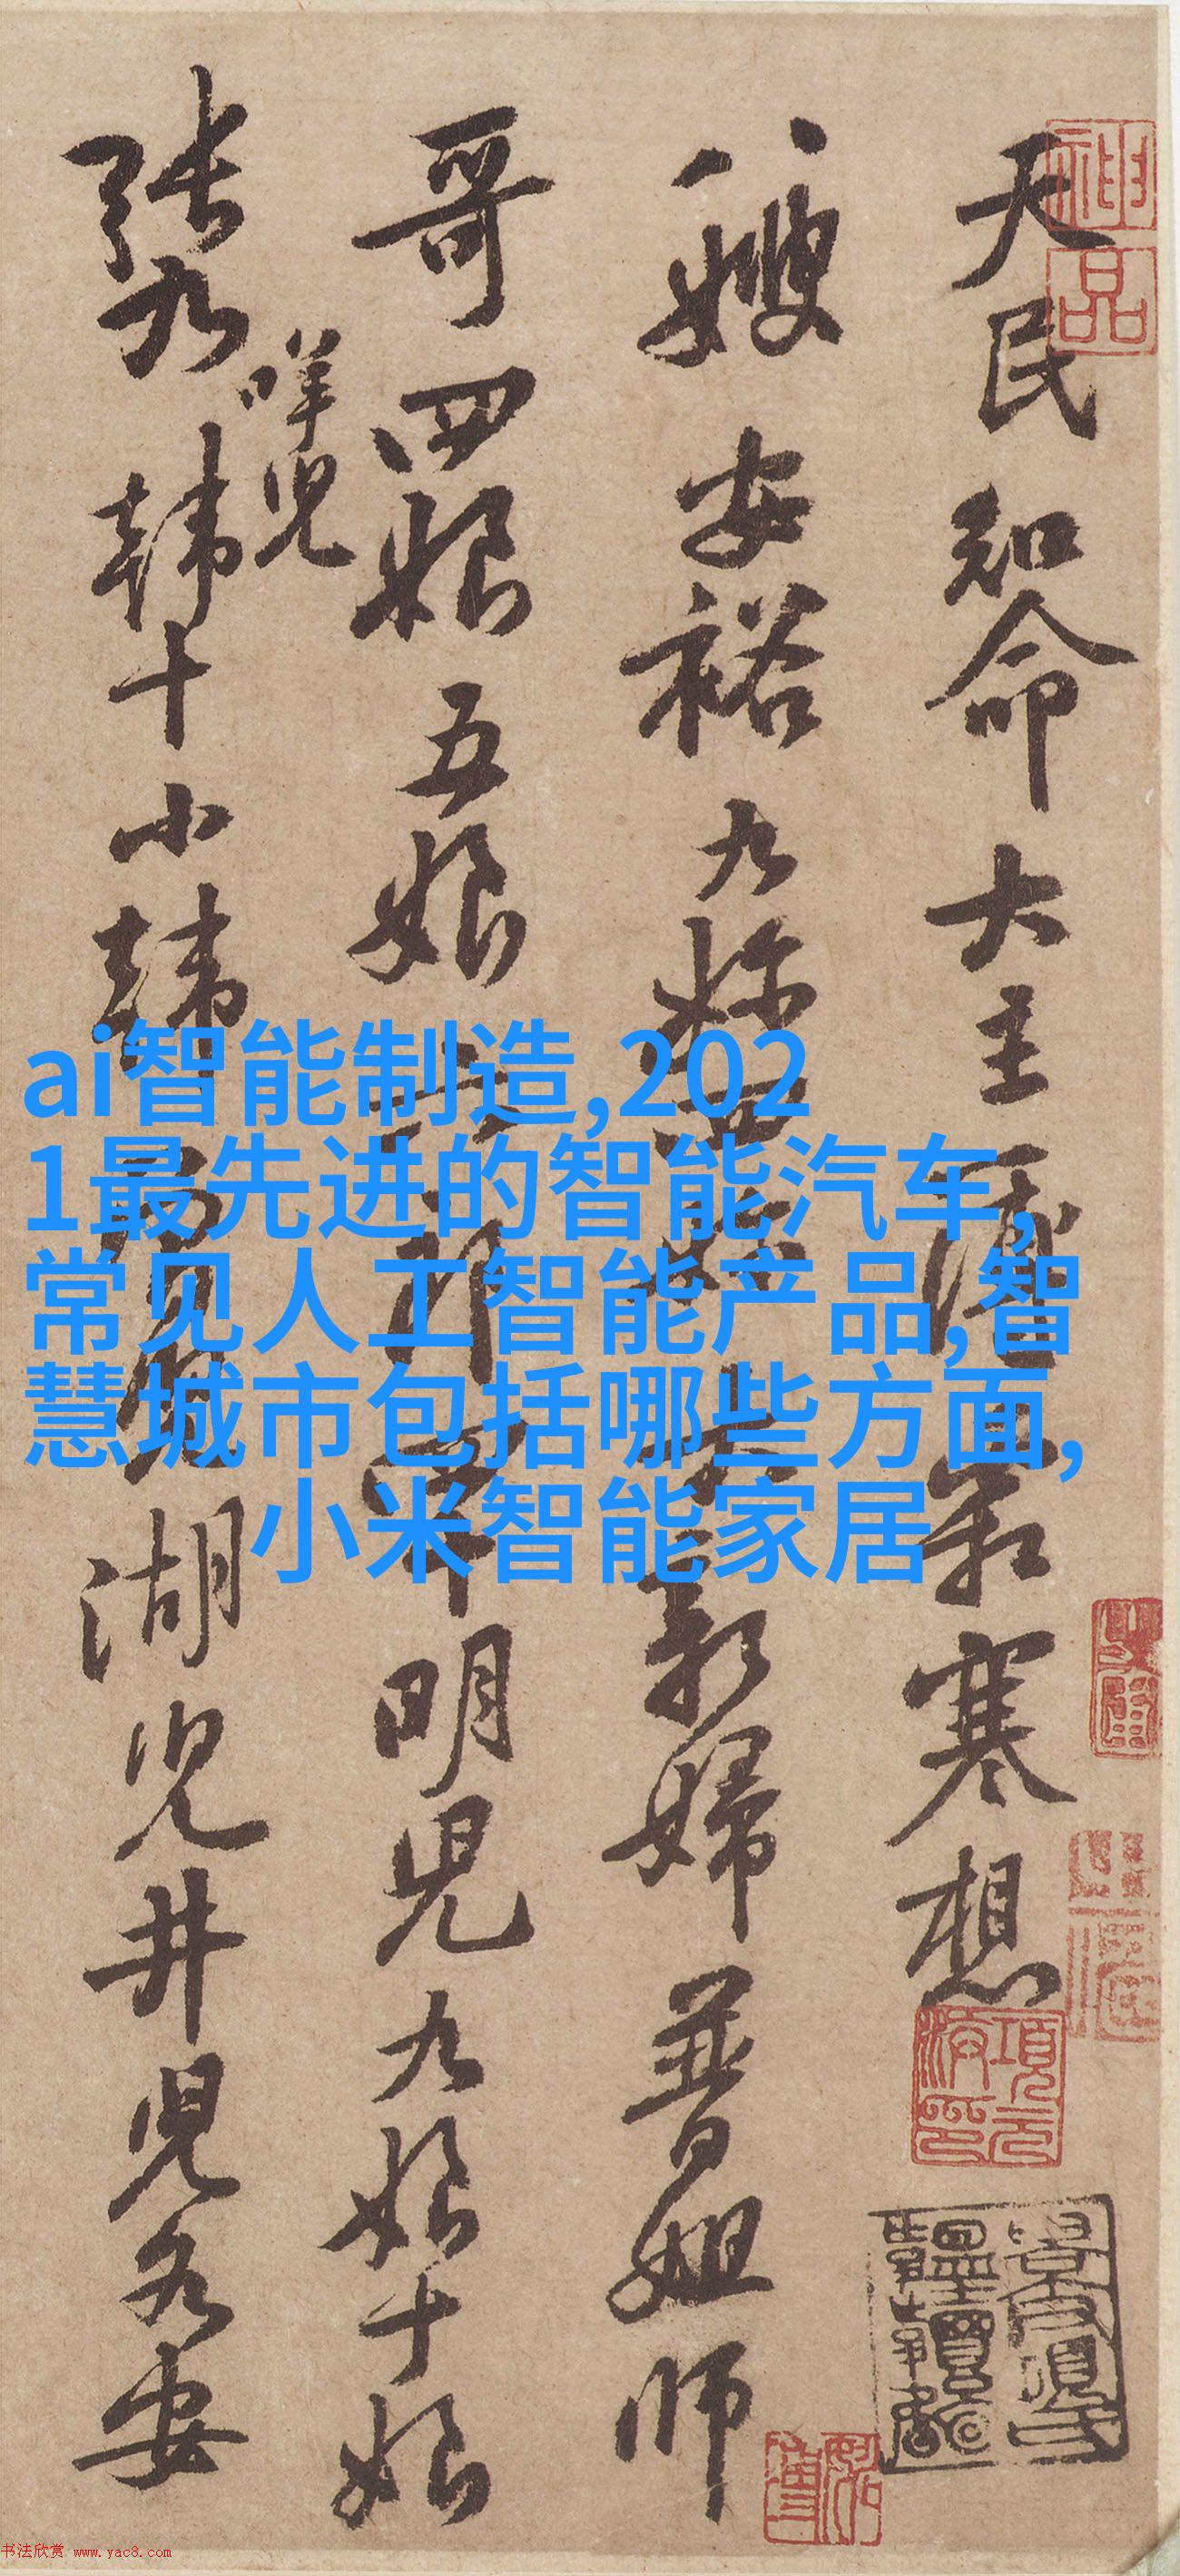 神品
天民知命大主簿寒想
八嫂安裕九娣新婦普姐師
哥四娘五娘明兒九娘十娘
張九咩兒韓十小韓湖兒井兒各安
ai智能制造,202
1最先进的智能汽车,
常见人工智能产品,智
慧城市包括哪些方面,
小米智能家居
书法欣赏 www.yac8.com